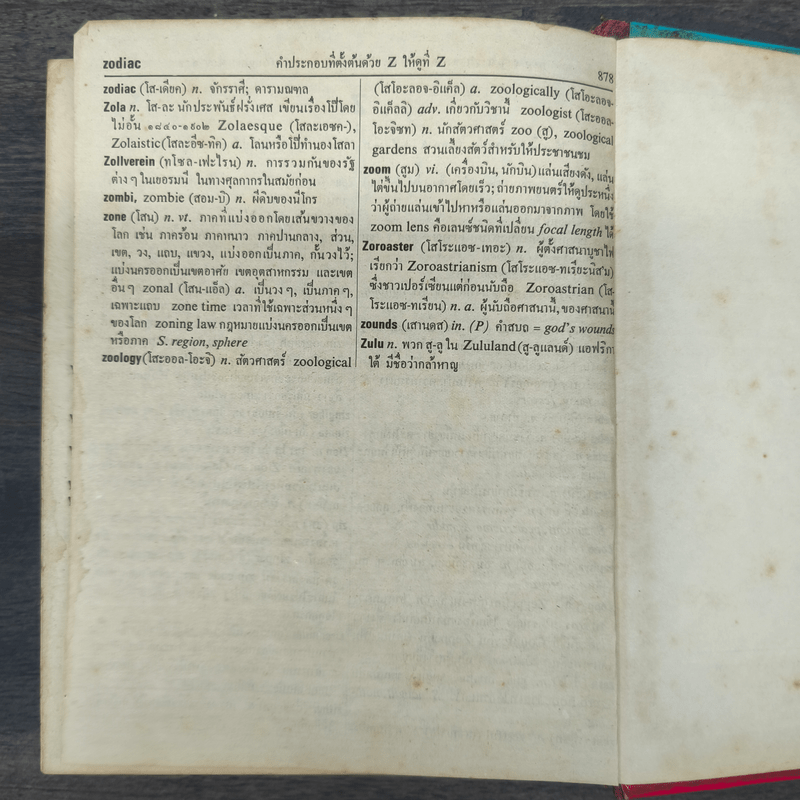 zodiac คำประกอบที่ตั้งต้นด้วย Z ให้ดูที่ Z 878
zodiac (โส-เดียค) n. จักรราศี; ดารามณฑล
Zola n. โส-ละ นักประพันธ์ฝรั่งเศส เขียนเรื่องโป๊โดย
ไม่อั้น ๑๘๔๐-๑๙๐๒ Zolaesque (โสละเอซค-),
Zolaistic (โสละอีซ-ทิค) a. โลนหรือโป๊ทำนองโสลา
Zollverein (ทโซล-เฟะไรน) n. การรวมกันของรัฐ
ต่าง ๆ ในเยอรมนี ในทางศุลกากรในสมัยก่อน
zombi, zombie (สอม-บิ) n. ผีดิบของนีโกร
zone (โสน) n. vt. ภาคที่แบ่งออกโดยเส้นขวางของ
โลก เช่น ภาคร้อน ภาคหนาว ภาคปานกลาง, ส่วน,
เขต, วง, แถบ, แขวง, แบ่งออกเป็นภาค, กั้นวงไว้;
แบ่งนครออกเป็นเขตอาศัย เขตอุตสาหกรรม และเขต
อื่น ๆ zonal (โสน-แอ็ล) a. เป็นวง ๆ, เป็นภาค ๆ,
เฉพาะแถบ zone time เวลาที่ใช้เฉพาะส่วนหนึ่ง ๆ
ของโลก zoning law กฎหมายแบ่งนครออกเป็นเขต
หรือภาค S. region, sphere
zoology (โสะออล-โอะจิ) n. สัตวศาสตร์ zoological
(โสโอะลอจ-อิแค็ล) a. zoologically (โสโอะลอจ-
อิแค็ลลิ) adv. เกี่ยวกับวิชานี้ zoologist (โสะออล-
โอะจิซท) n. นักสัตวศาสตร์ zoo (สู), zoological
gardens สวนเลี้ยงสัตว์สำหรับให้ประชาชนชม
zoom (สูม) vi. (เครื่องบิน, นักบิน) แล่นเสียงดัง, แล่น
ไต่ขึ้นไปบนอากาศโดยเร็ว; ถ่ายภาพยนตร์ให้ดูประหนึ่ง
ว่าผู้ถ่ายแล่นเข้าไปหาหรือแล่นออกมาจากภาพ โดยใช้
zoom lens คือเลนซ์ชนิดที่เปลี่ยน focal length ได้
Zoroaster (โสโระแอซ-เทอะ) n. ผู้ตั้งศาสนาบูชาไฟ
เรียกว่า Zoroastrianism (โสโระแอซ-ทเรียะนิสม)
ซึ่งชาวเปอร์เซียนแต่ก่อนนับถือ Zoroastrian (โส-
โระแอซ-ทเรียน) n. a. ผู้นับถือศาสนานี้, ของศาสนานี้
zounds (เสานดส) in. (P) คำสบถ = god's wounds
Zulu n. พวก สู-ลู ใน Zululand (สู-ลูแลนด์) แอฟริกา
ใต้ มีชื่อว่ากล้าหาญ